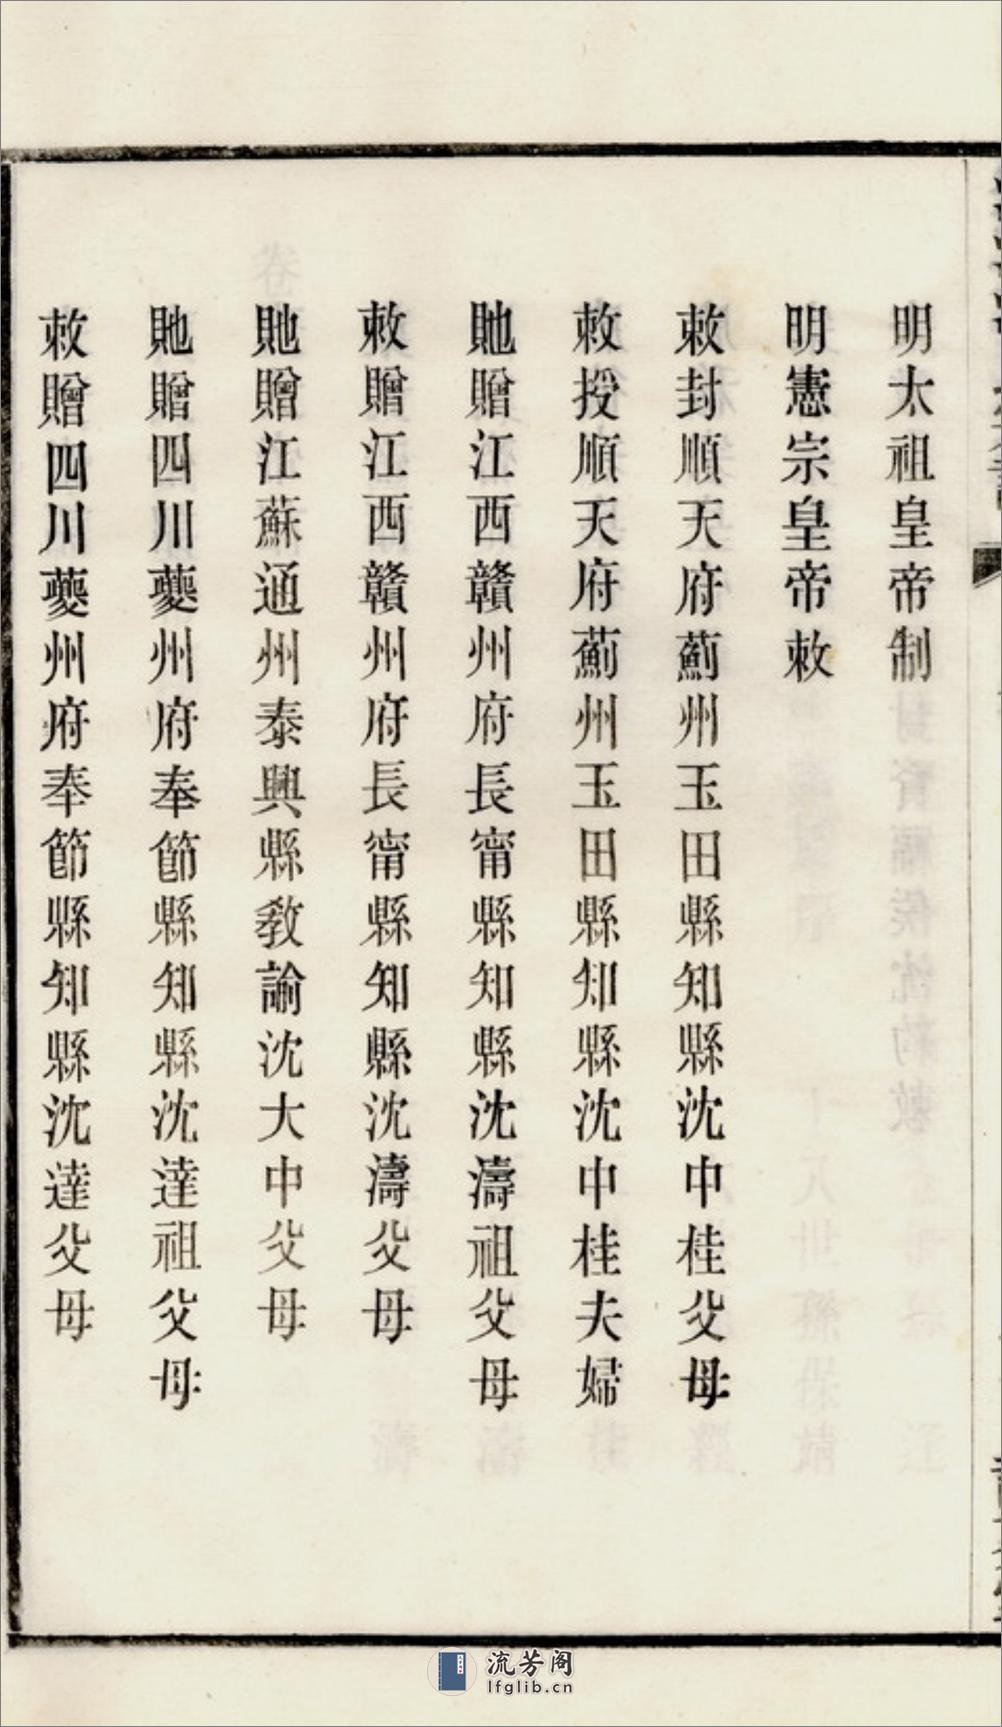 明太祖皇帝制
明憲宗皇帝敕
敕封順天府薊州玉田縣知縣沈中桂父母
敕授順天府薊州玉田縣知縣沈中桂夫婦
貤贈江西贛州府長甯縣知縣沈濤祖父母
敕贈江西贛州府長甯縣知縣沈濤父母
貤贈江蘇通州泰興縣敎諭沈大中父母
貤贈四川夔州府奉節縣知縣沈達祖父母
敕贈四川夔州府奉節縣知縣沈達父母
流芳阁
lfglib.cn